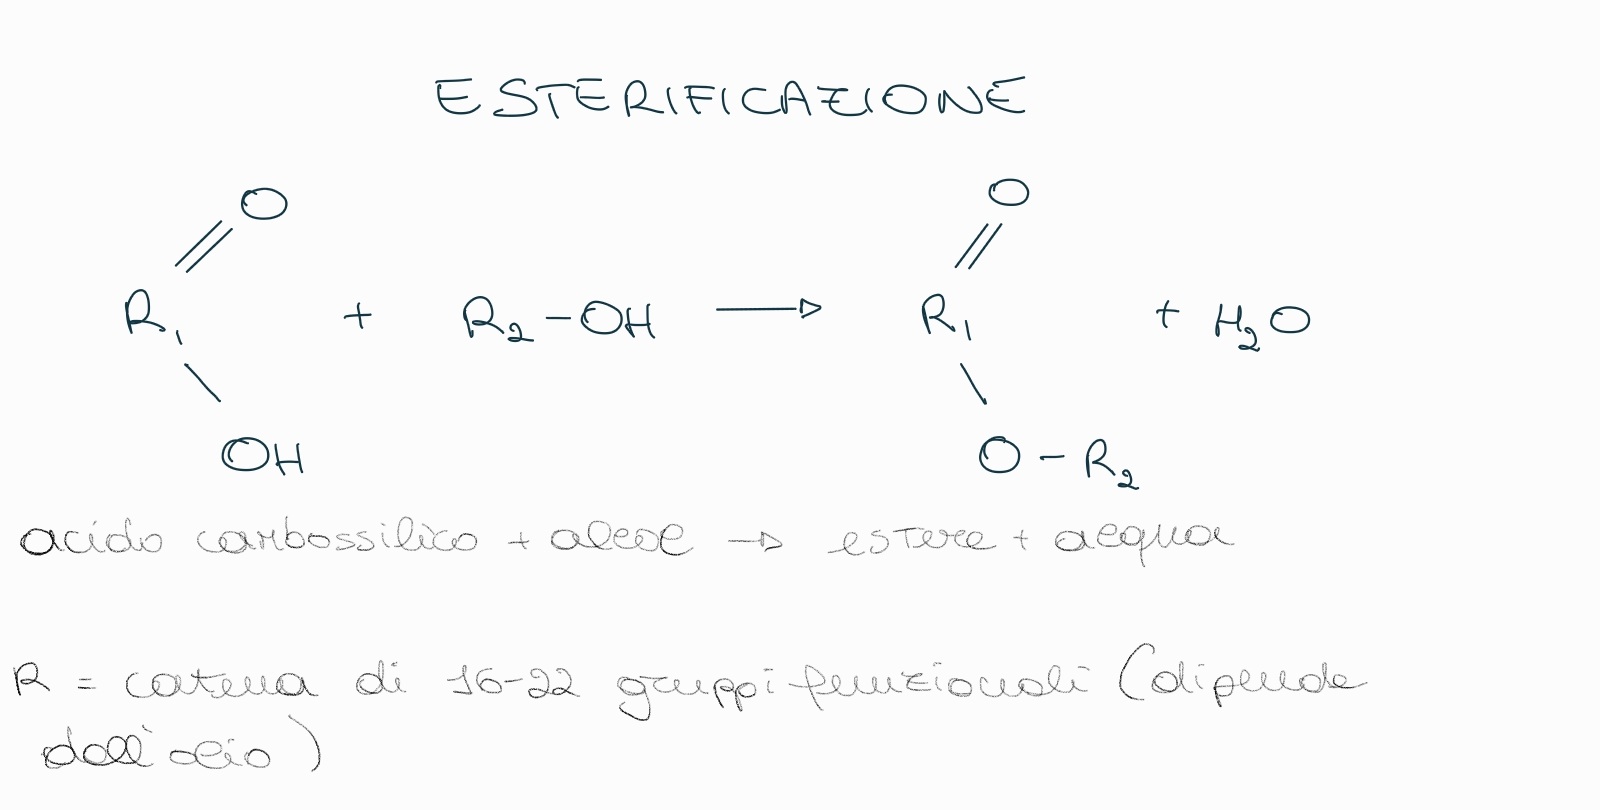 ESTERIFICAZIONE
O O
R1 + R2-OH → R1 + H2O
OH O-R2
acido carbossilico + alcol → estere + acqua
R = catena di 16-22 gruppi funzionali (dipende
dall'olio)